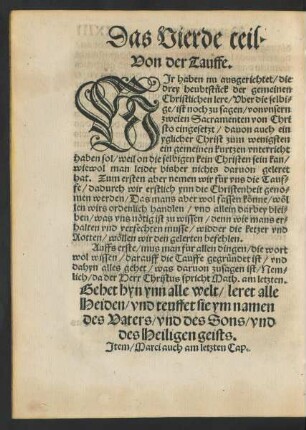 Das Vierde teil.
Von der Tauffe.
WJr haben nu ausgerichtet / die
drey heubtstück der gemeinen
Christlichen lere / Vber die selbi-
ge / ist noch zu sagen / von vnsern
zweien Sacramenten von Chri
sto eingesetzt / dauon auch ein
yglicher Christ zum wenigsten
ein gemeinen kurtzen vnterricht
haben sol / weil on die selbigen kein Christen sein kan /
wiewol man leider bisher nichts dauon geleret
hat. Zum ersten aber nemen wir fur vns die Tauf-
fe / dadurch wir erstlich ynn die Christenheit geno-
men werden / Das mans aber wol fassen könne / wöl
len wirs ordenlich handlen / vnd allein darbey blei-
ben / was vns nötig ist zu wissen / denn wie mans er-
halten vnd verfechten musse / widder die ketzer vnd
Rotten / wöllen wir den gelerten befehlen.
Auffs erste / mus man fur allen dingen / die wort
wol wissen / darauff die Tauffe gegründet ist / vnd
dahyn alles gehet / was dauon zusagen ist / Nem-
lich / da der Herr Christus spricht Math. am letzten.
Gehet hyn ynn alle welt / leret alle
Heiden / vnd teuffet sie ym namen
des Vaters / vnd des Sons / vnd
des Heiligen geists.
Jtem / Marci auch am letzten Cap.